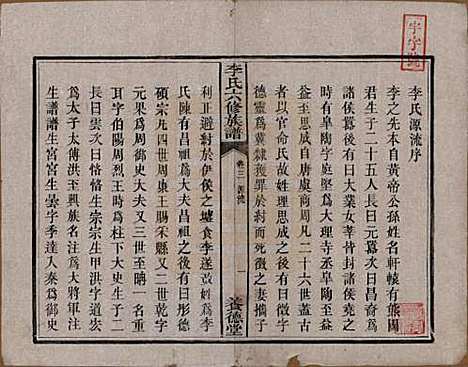 李氏源流序
李之先本自黃帝公孫姓名軒轅有熊國
君生子二十五人長曰元囂次曰昌裔爲
諸侯囂後有日大業女莘脩封諸侯堯之
時有子皐陶字庭堅爲大理寺臣皐陶生
益至思成自唐虞商周凡二十六世蓋古
者以官命氏故姓理思成之後有曰徵字
德靈爲冀隸獲罪於紂而死徵之妻攜子
李氏六修族譜
卷三 源流
一
敦德堂
利正避紂於伊侯之墟食李遂改姓爲李
氏陳有曰昌祖爲大夫昌祖之後有曰彤德
碩宗九四世周康王賜采又二世乾字
元果爲周御史大夫又三世至耼一名重
耳字伯陽周烈王時爲柱下大史生子二
長曰雲次曰恪生宗宗生甲洪字道宏
爲太子太傅洪至興族名立爲大將軍注
生譜譜生宮宮生曇字季達入秦爲御史